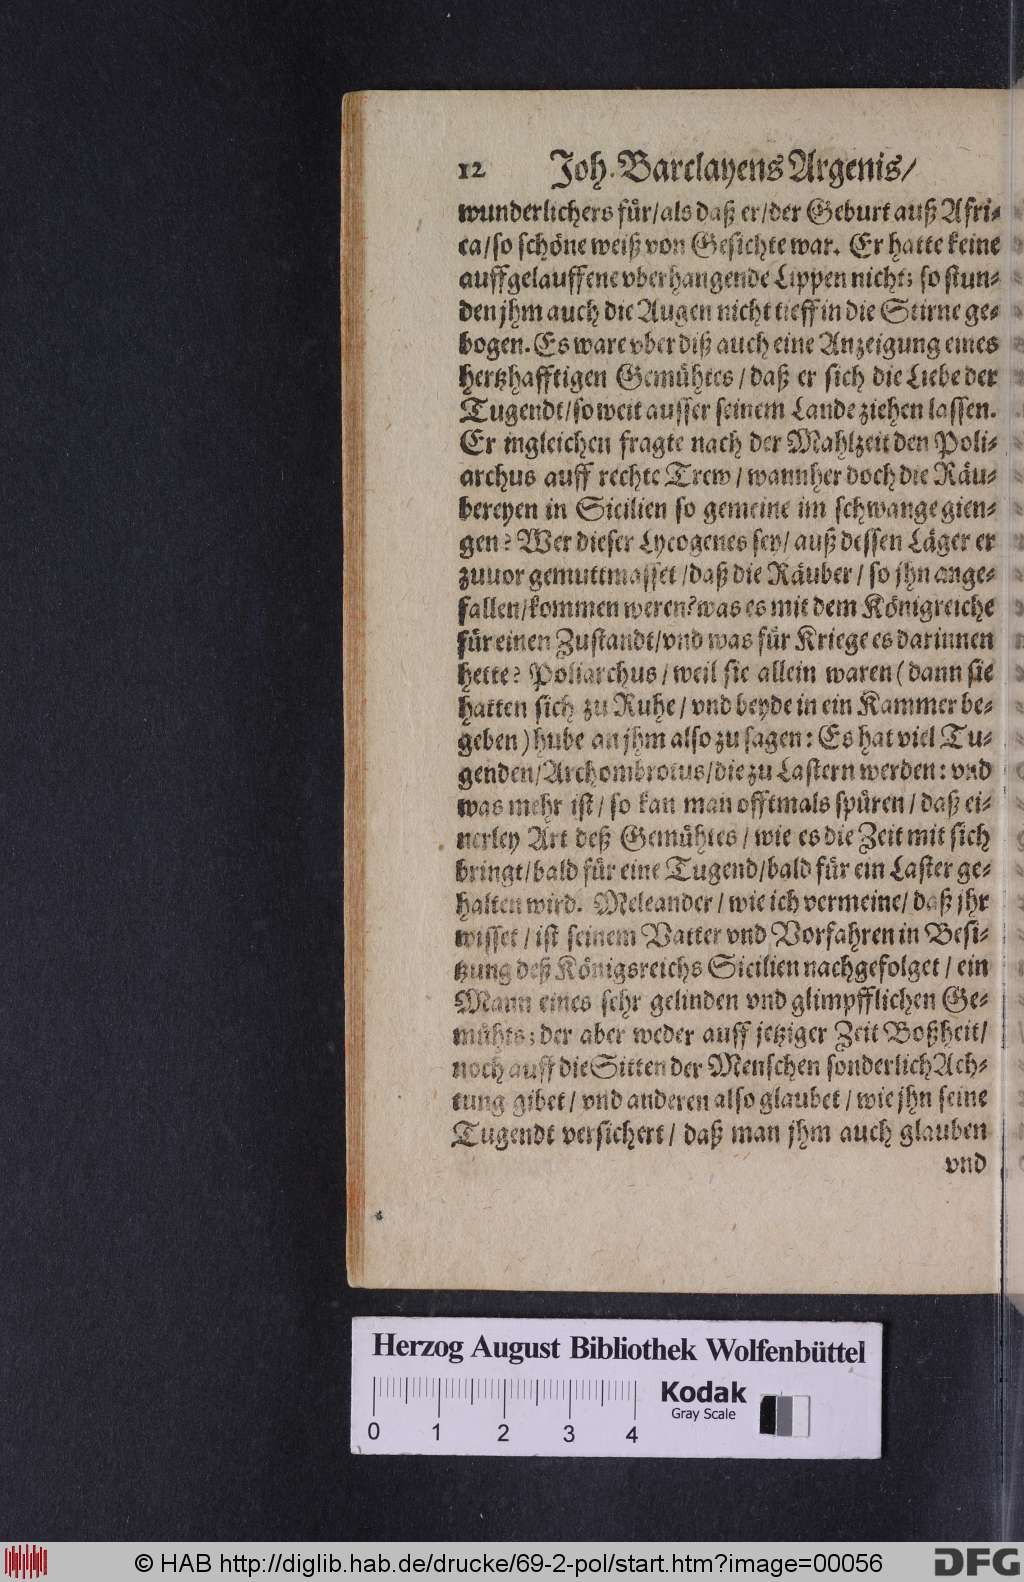 12 Joh. Barclayens Argenis/
wunderlichers für/als daß er/der Geburt auß Afri-
ca/so schöne weiß von Gesichte war. Er hatte keine
auffgelauffene vberhangende Lippen nicht; so stun-
den jhm auch die Augen nicht tieff in die Stirne ge-
bogen. Es ware vber diß auch eine Anzeigung eines
hertzhafftigen Gemühtes/daß er sich die Liebe der
Tugendt/so weit ausser seinem Lande ziehen lassen.
Er ingleichen fragte nach der Mahlzeit den Poli-
archus auff rechte Trew/wannher doch die Räu-
bereyen in Sicilien so gemeine im schwange gien-
gen? Wer dieser Lycogenes sey/auß dessen Läger er
zuuor gemuttmasset/daß die Räuber/so jhn ange-
fallen/kommen weren? was es mit dem Königreiche
für einen Zustandt/vnd was für Kriege es darinnen
hette? Poliarchus/weil sie allein waren (dann sie
hatten sich zu Ruhe/vnd beyde in ein Kammer be-
geben) hube an jhm also zu sagen: Es hat viel Tu-
genden/Archombrotus/die zu Lastern werden: vnd
was mehr ist/so kan man offtmals spüren/daß ei-
nerley Art deß Gemühtes/wie es die Zeit mit sich
bringt/bald für eine Tugend/bald für ein Laster ge-
halten wird. Meleander/wie ich vermeine/daß jhr
wisset/ist seinem Vatter vnd Vorfahren in Besi-
tzung deß Königsreichs Sicilien nachgefolget/ein
Mann eines sehr gelinden vnd glimpfflichen Ge-
mühts; der aber weder auff jetziger Zeit Boßheit/
noch auff die Sitten der Menschen sonderlich Ach-
tung gibet/vnd anderen also glaubet/wie jhn seine
Tugendt versichert/daß man jhm auch glauben
vnd
Herzog August Bibliothek Wolfenbüttel
0 1 2 3 4
Kodak
Gray Scale
© HAB http://diglib.hab.de/drucke/69-2-pol/start.htm?image=00056
DFG